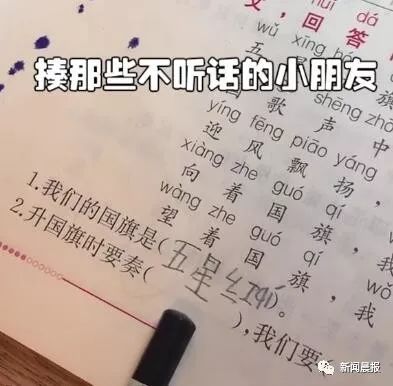 huí dá
文，回答
wǔ xīng hó
揍那些不听话的小朋友
歌声中
yíng fēng piāo yáng
迎风飘扬，
xiàng zhe guó qí
向着国旗，我
wàng zhe guó qí wǒ
望着国旗，我
1.我们的国旗是(五星红)。
2.升国旗时要奏( ),我们要
新闻晨报